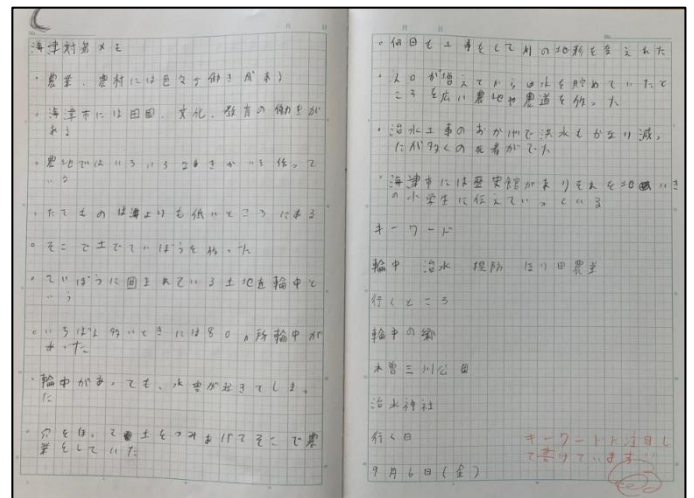 海津対策メモ
・農業、農村には色々な働きがある
・海津市には田園、文化、教育の働きが
ある
・農地ではいろいろな
作って
いる
・たてものは海よりも低いところにある
・そこで土でていぼうを作った
・ていぼうに囲まれている土地を輪中と
いう
・いちばん多いときには80ヵ所輪中が
あった
・輪中があっても、水害が起きてしまっ
た
・穴をほって土をつみあげてそこで農
業をしていた
・何回も工事をして川の地形を変えれた
・人口が増えてからは水を貯めていたと
ころを広い農地や農道を作った
・治水工事のおかげで洪水もかなり減っ
たが多くの死者がでた
・海津市には歴史館がありそれを地いき
の小学生に伝えていっている
キーワード
輪中 治水 堤防 ほり田農業
行くところ
輪中の郷
木曽三川公園
治水神社
行く日
9月6日(金)
キーワードに注目し
て書けています